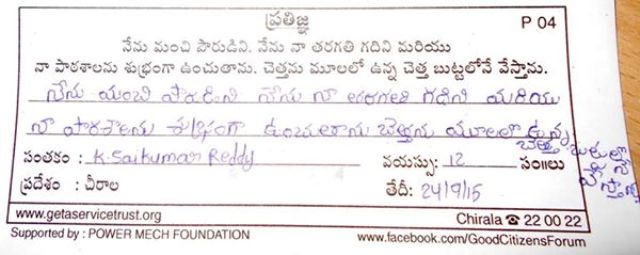 ప్రతిజ్ఞ
P 04
నేను మంచి పౌరుడిని. నేను నా తరగతి గదిని మరియు
నా పాఠశాలను శుభ్రంగా ఉంచుతాను. చెత్తను మూలలో ఉన్న చెత్త బుట్టలోనే వేస్తాను.
నేను మంచి పౌరుడిని నేను నా తరగతి గదిని మరియు
నా పాఠశాలను శుభ్రంగా ఉంచుతాను చెత్తను మూలలో ఉన్న
చెత్త బుట్టలోనే
వేస్తాను
సంతకం : K. Saikumar Reddy వయస్సు: 12 సం॥లు
ప్రదేశం : చీరాల తేదీ: 24/9/15
www.getaservicetrust.org Chirala ☎ 22 00 22
Supported by : POWER MECH FOUNDATION www.facebook.com/GoodCitizensForum